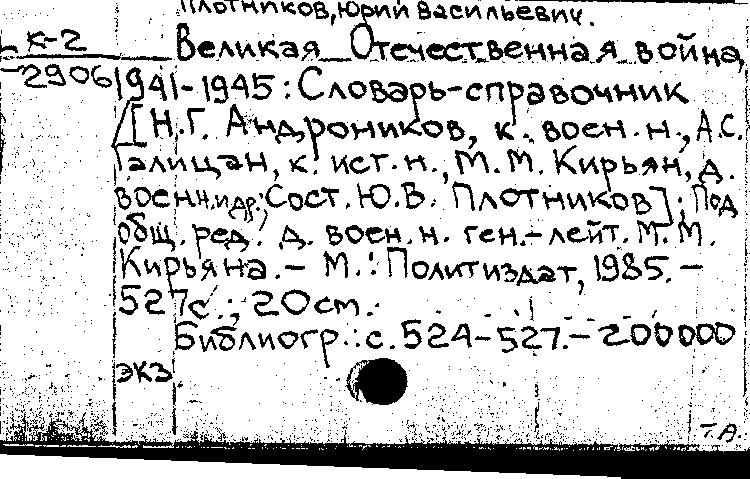 Плотников, Юрий Васильевич.
К-2 Великая Отечественная война,
2906 1941-1945: Словарь-справочник
/[Н.Г. Андроников, к. воен. н., А.С.
Галицан, к. ист. н., М.М. Кирьян, д.
воен. н. и др.; Сост. Ю.В. Плотников]; Под
общ. ред. д. воен. н. ген.-лейт. М.М.
Кирьяна. - М.: Политиздат, 1985. -
527с.; 20см.
Библиогр.: с. 524-527. - 200000
экз.
Т.А.